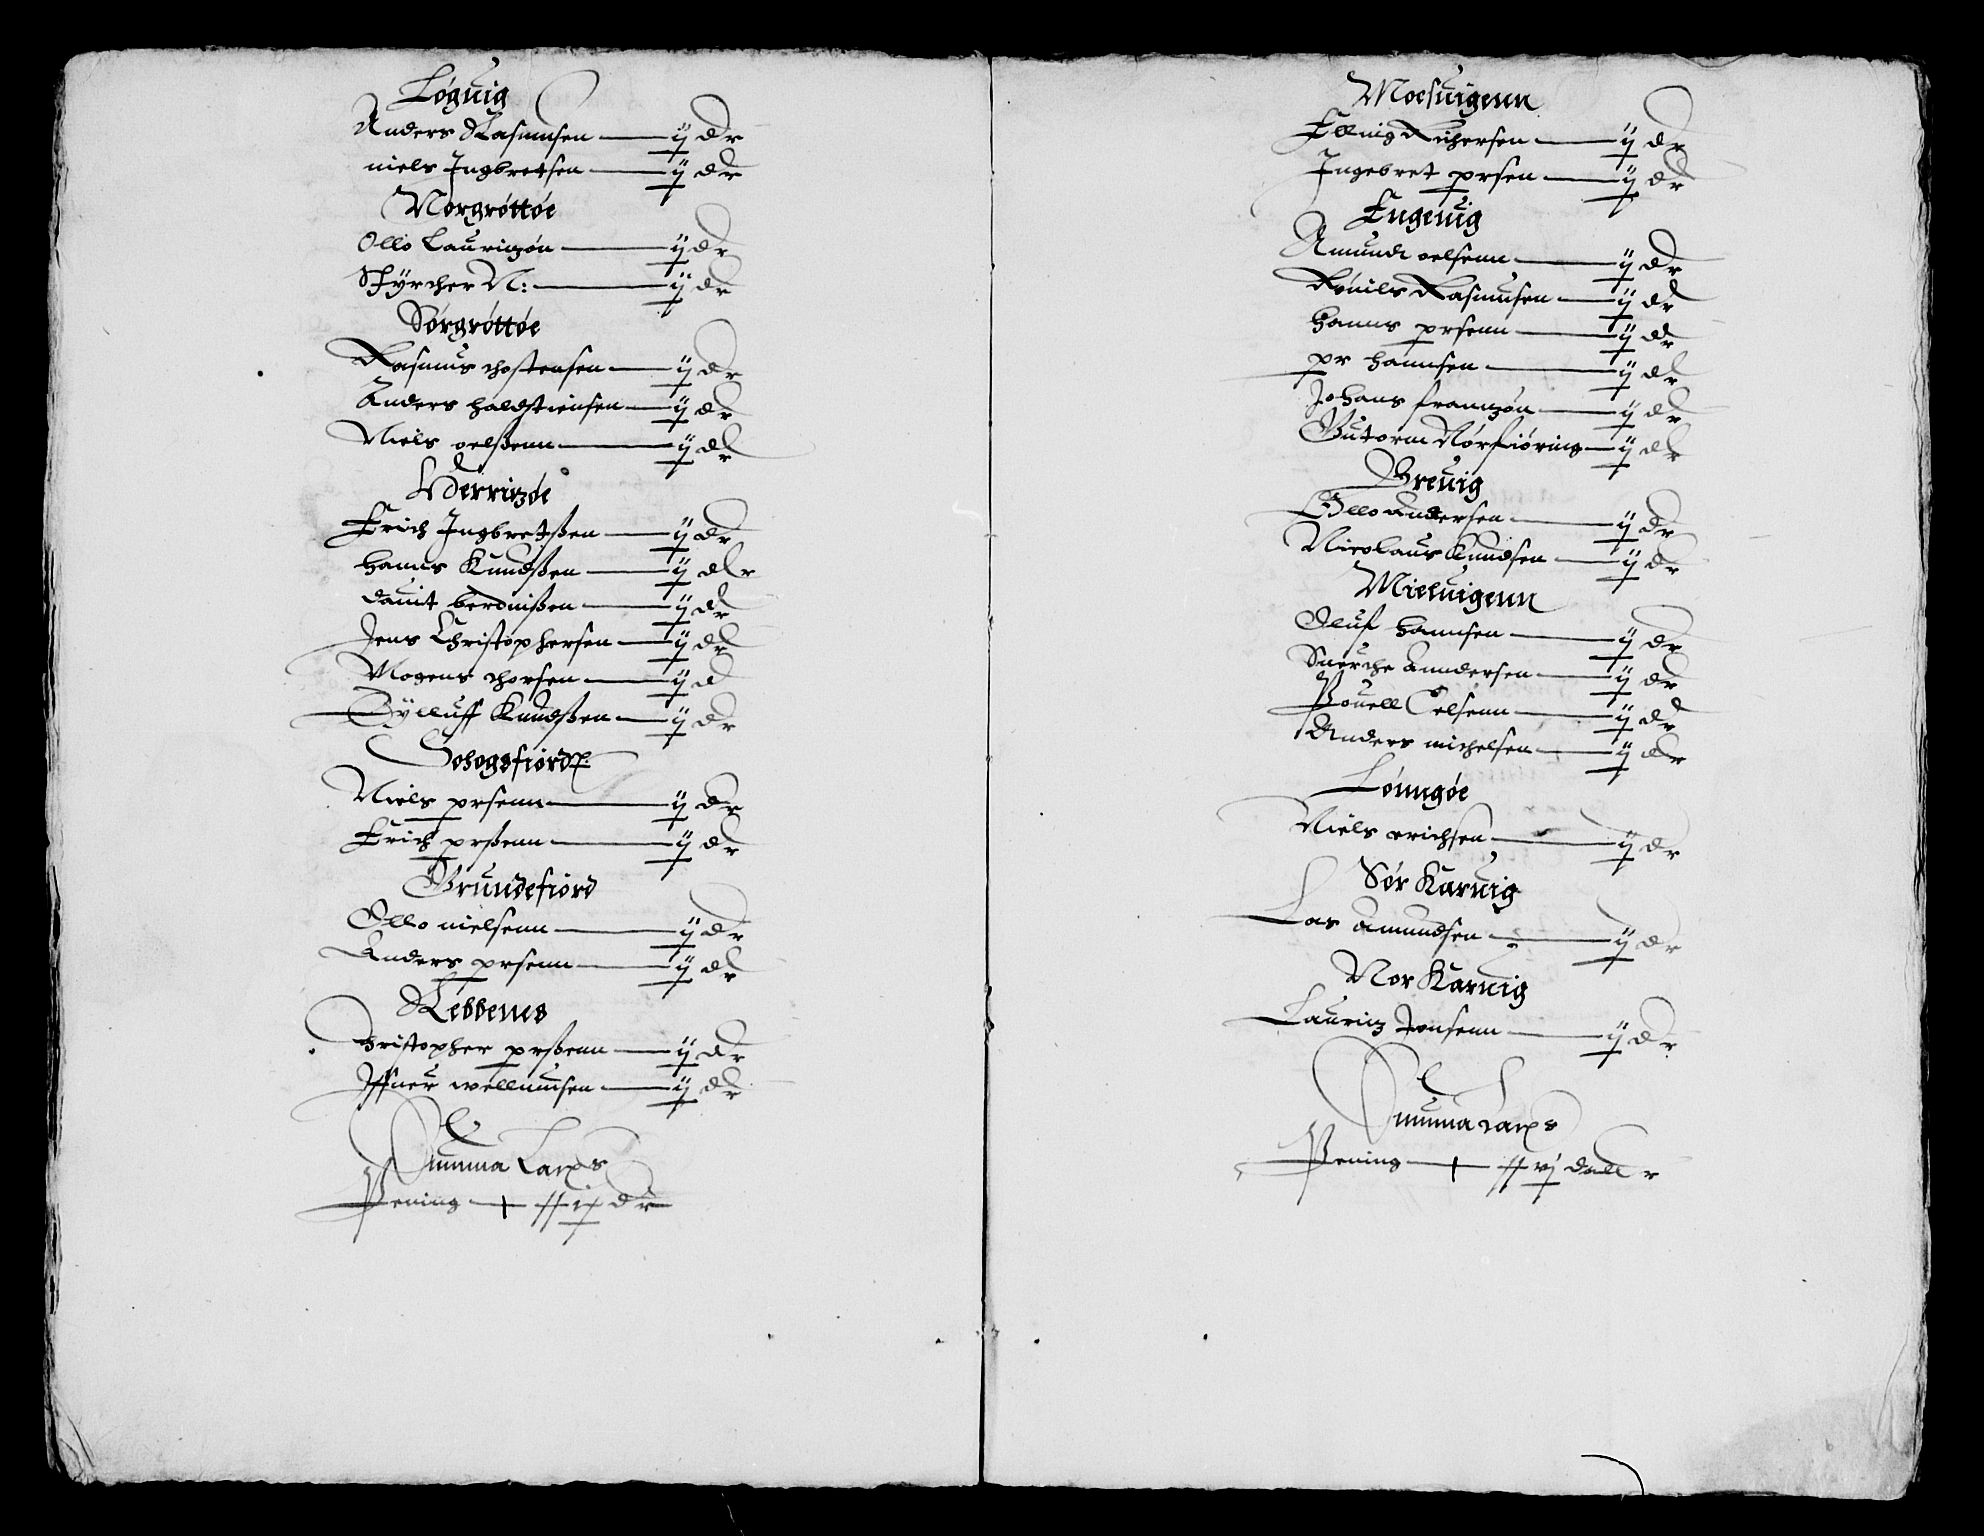 Løguig
Anders Rasmusen — ij dr
niels Ingbretsen — ij dr
Norgrøttøe
Ollo Laurinzøn — ij dr
Styrcher N: — ij dr
Sørgrøttøe
Rasmus thostensen — ij dr
Anders haldstiensen — ij dr
Niels oelßenn — ij dr
Werrinzøe
Erich Ingbretßen — ij dr
Hanns Knudßen — ij dlr
dauit berdnißen — ij dr
Jens Christophersen — ij dr
Mogens thorsen — ij d
Gylluff Knudßen — ij dr
Niels prsenn — ij dr
Erich prßenn — ij dr
Grundefiord
Ollo nielsenn — ij dr
Anders prsenn — ij dr
Rebbenes
Christopher prßenn — ij dr
Iffuer wellumsen — ij dr
Summa Larps
Pening — dr
Moesuigenn
Elling Richersen — ij dr
Ingebret prsen — ij dr
Engeuig
Amundt oelsenn — ij dr
Rønils Rasmusen — ij dr
Hanns prsenn — ij dr
pr hannsen — ij dr
Johans franzøn — ij dr
Gutorm Nørfiøring — ij dr
Breuig
Ollo Andersen — ij dr
Nicolaus Knudsen — ij dr
Mieluigenn
Oluf Hannsen — ij dr
Suerche Anndersen — ij dr
Pouell Oelsenn — ij dr
Anders michelsen — ij dr
Lønngøe
Niels erichsen — ij dr
Sør Karuig
Las Amundsen — ij dr
Nor Karuig
Laurinz Jensenn — ij dr
Summa Larps
Pening — vj dallr